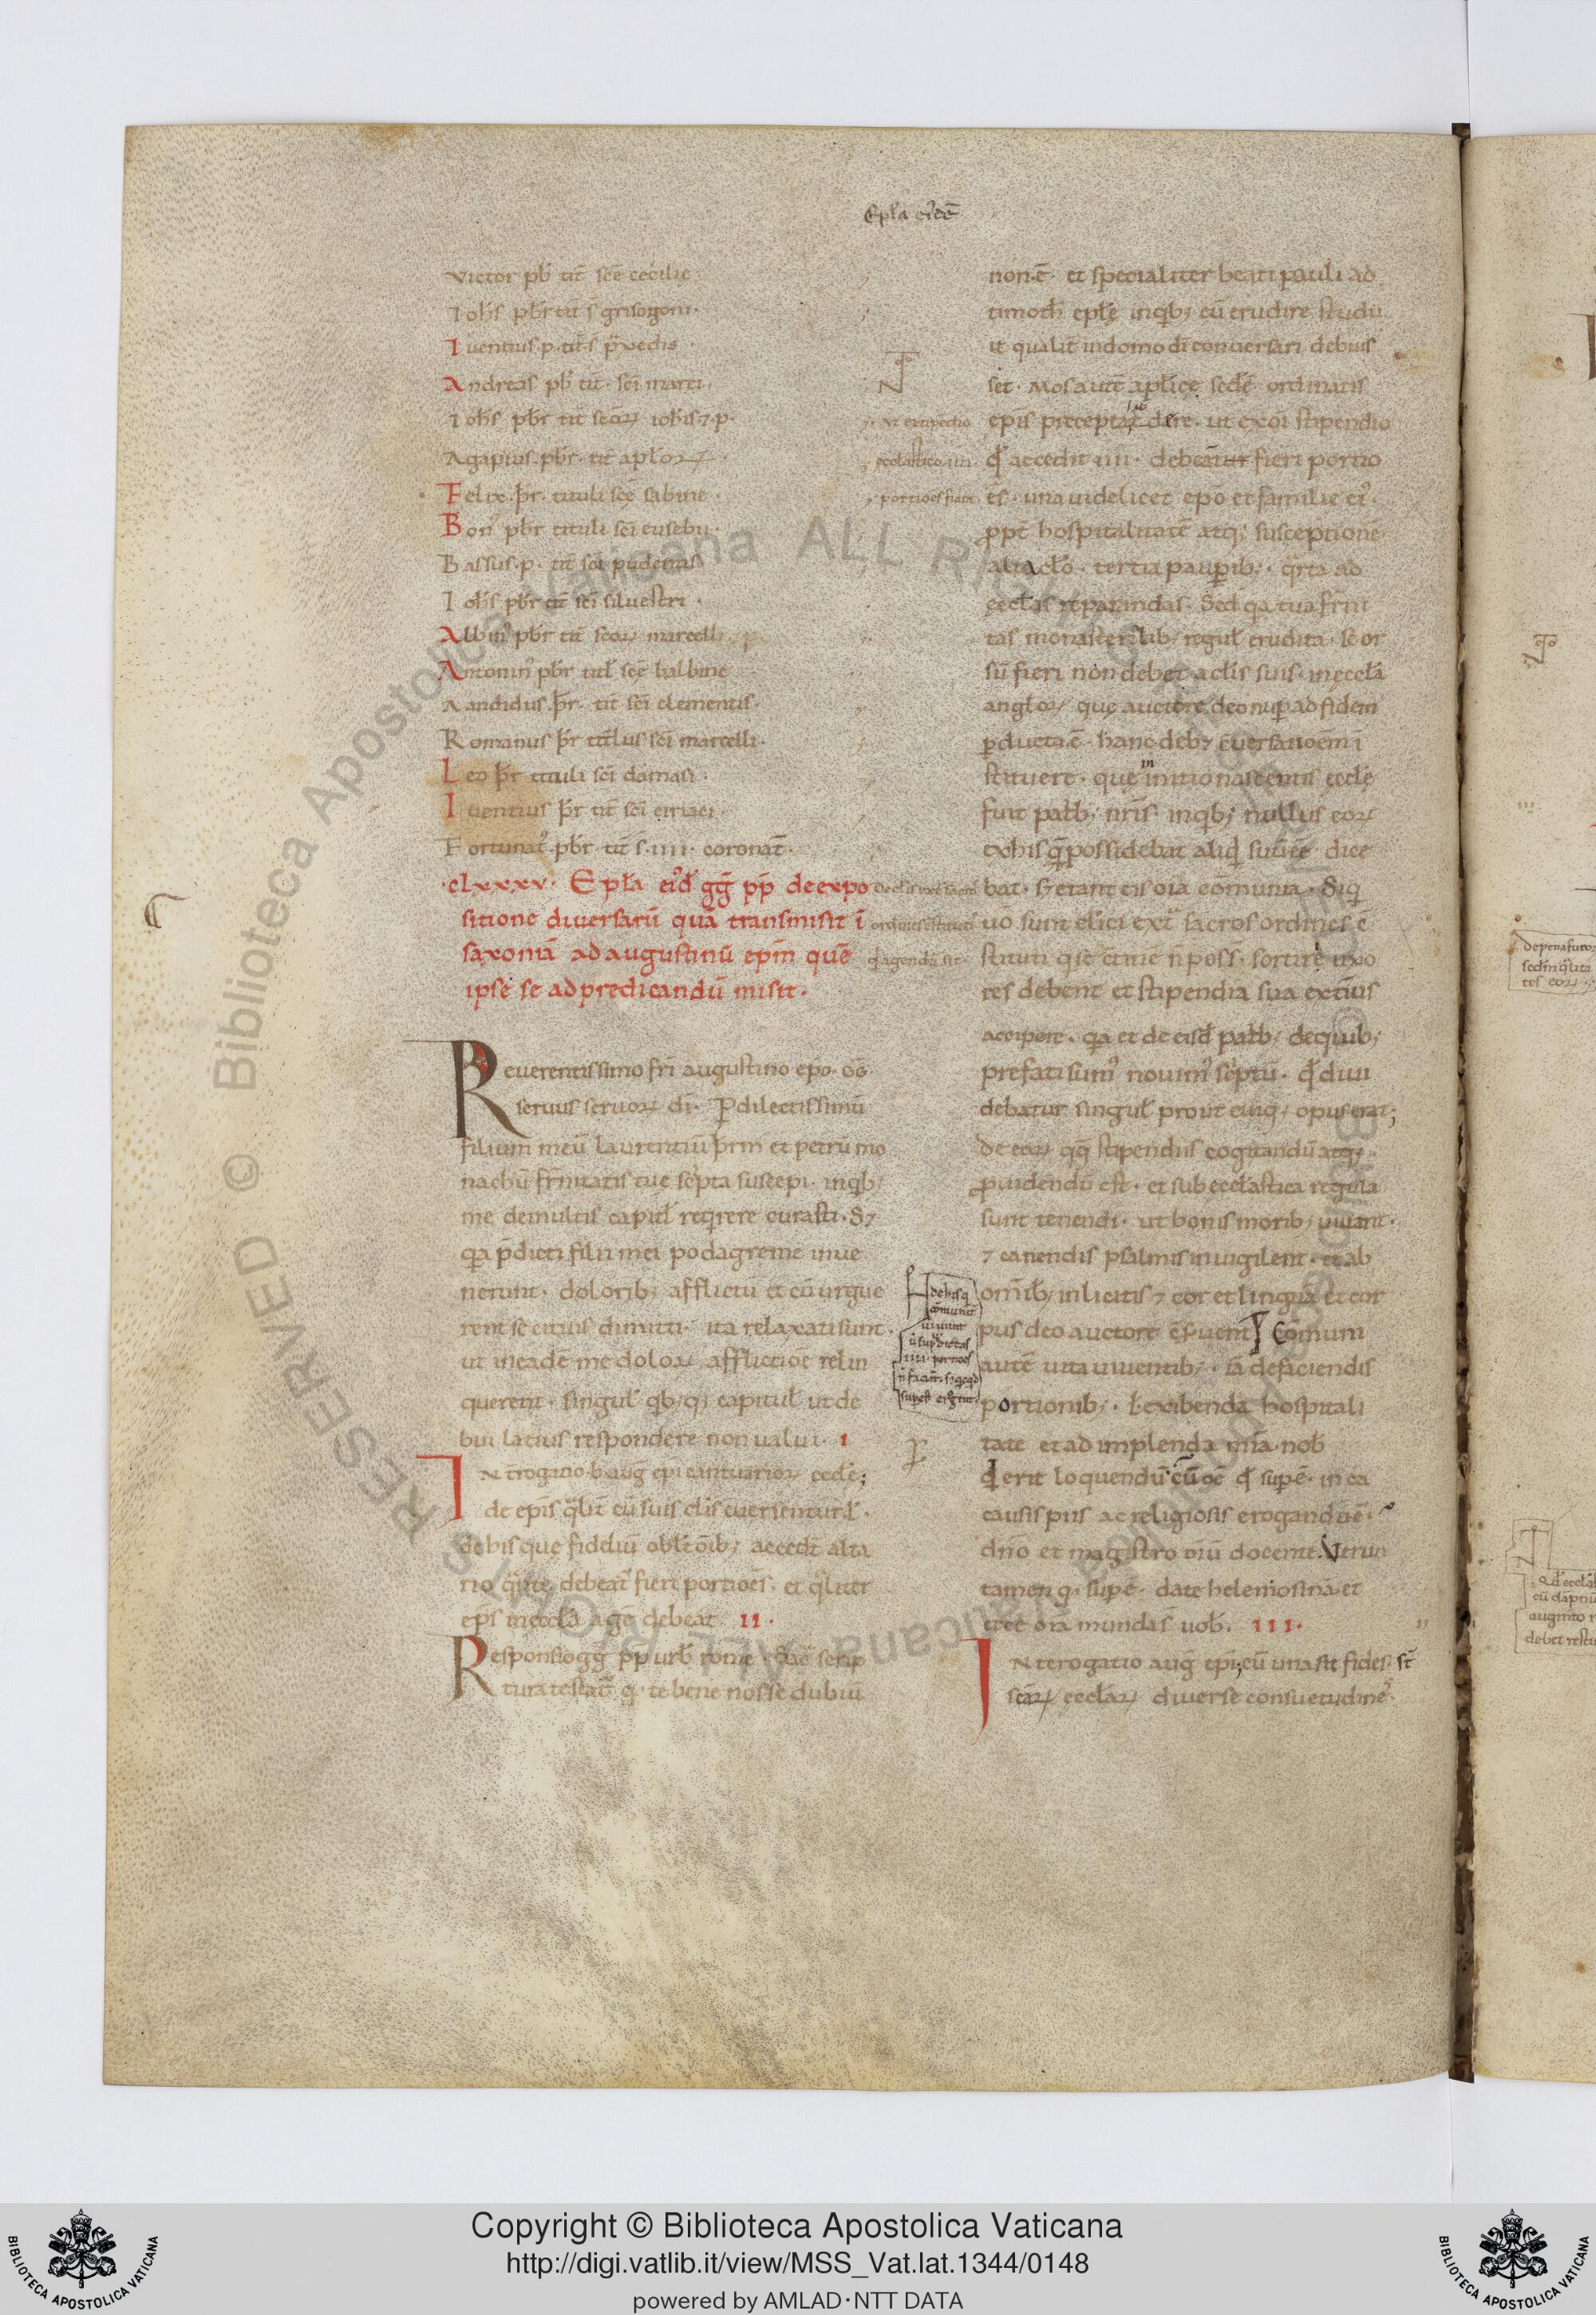 Epl'a ei'dē
victor pb̄r tit̄ scē cecilie
Ioh̄s pb̄r tit̄ s̄ grisogoni.
Iuentius p. tit̄. s̄ p̄xedis
Andreas pb̄r tit̄. sci marci.
Ioh̄s pb̄r tit̄ scōꝝ ioh̄is ⁊ p.
Agapius. pb̄r. tit̄ apl'oꝝ.
Felix. p̄r. tituli scē sabine.
Bon' pb̄r tituli sci eusebii.
Bassus. p. tit̄ sci pudentis
Ioh̄s pb̄r tit̄ sci siluestri.
Albin' pb̄r tit̄ scoꝝ marcelli
Antonin' pb̄r titl' scē balbine
Aandidus. p̄r. tit̄ sci clementis.
Romanus p̄r titlus sci marcelli.
Leo p̄r tituli sci damasi.
Iuentius p̄r tit̄ sci ciriaci.
Fortunat' pb̄r. tit̄ s̄. iiii. coronat̄.
.clxxxv. Epl'a ei'd' gḡ pp̄ de expo
sitione diuersarū quā transmisit ī
saxoniā ad augustinū ep̄m quē
ipse se ad predicandū misit.
Reuerentissimo fr̄i augustino ep̄o. GḠ
seruus seruoꝝ dī. Pdilectissimū
filium meū laurentiū p̄rm et petrū mo
nachū fr̄nitatis tue sc'pta suscepi. inqb;
me demultis capitl' reqrere curasti. S;
qa p̄dicti filii mei podagre me inue
nerunt. dolorib; afflictū et cū urgue
rent se citius dimitti. ita relaxati sunt.
ut ineadē me doloꝝ afflictioē relin
querent. singul' qb;q; capitul' ut de
bui latius respondere non ualui. I
INtrogatio. b. aug̅ ep̄i cantuarioꝝ eccl'e;
de ep̄is qlit̄ cū suis cl'is cūersentur. l'.
de his que fideliū oblt̄oīb; accedt̄ alta
rio qnte debeāt fieri portiōes. et qliter
ep̄s ineccl'a agē debeat. II.
Responsio gg̅ pp̄ urb' rome. Sac̄ scrip
tura testat̄ q. te bene nosse dubiū
non. ē. et specialiter beati pauli ad
timoth̄ epl'ę inqib; eū erudire studu
it qualit̄ indomo dī conuersari debuis
set. Mos autē apl'ice sedē ordinatis
ep̄is precepta dare. ut ex oī stipendio
qd' accedit iiii. debeant fieri portio
ēs. una uidelicet ep̄o et familie ei'.
p̱pt̄ hospitalitatē atq; susceptione.
alia cl'o. tertia paupib;. qrta ad
eccl'as reparandas. Sed qa tua fr̄ni
tas monasterii lib; regul' erudita. seor
sū fieri non debet a cl'is suis. in eccl'a
angloꝝ que auctore deo nup ad fidem
pducta. ē. hanc deb; ēuersatioēm ī
stituere. quę initio nascentis eccl'ę
fuit patb; nr̄is. inqb; nullus eoꝝ
ex his q̄ possidebat aliqd' suū eē dice
bat. s; erant eis oīa cōmunia. Siq
uō sunt clici ext̄ sacros ordines ē
stituti qi se ētine n̄ poss. sortire uxo
res debent et stipendia sua ext̄ius
accipere. qa et de eisd' patb; dequib;
prefati sum' nouim' sc'ptū. qd' diui
debatur singul' prout cuiq; opus erat;
de eoꝝ qq̄ stipendiis cogitandū atq;
puidendū est. et sub eccl'astica regula
sunt tenendi. ut bonis morib; uiuant.
⁊ canendis psalmis inuigilent. et ab
omīb; inlicitis ⁊ cor et lingua et cor
pus deo auctore cs̄uent Cōmuni
autē uita uiuentib;. iā defaciendis
portionib;. l' exibenda hospitali
tate et ad implenda mīa. nob'
qd erit loquendū cū oē qd' supē. in ea
causis piis ac religiosis erogandū ē.
dn̄o et magistro oīū docente. Verun
tamen q. supē. date helemosinā et
ecce oīa mundas uob'. III.
INterogatio aug̅ ep̄i; cū una sit fides. st̄
scāꝝ eccl'aꝝ diuerse consuetudine'.
Copyright © Biblioteca Apostolica Vaticana
http://digi.vatlib.it/view/MSS_Vat.lat.1344/0148
powered by AMLAD·NTT DATA